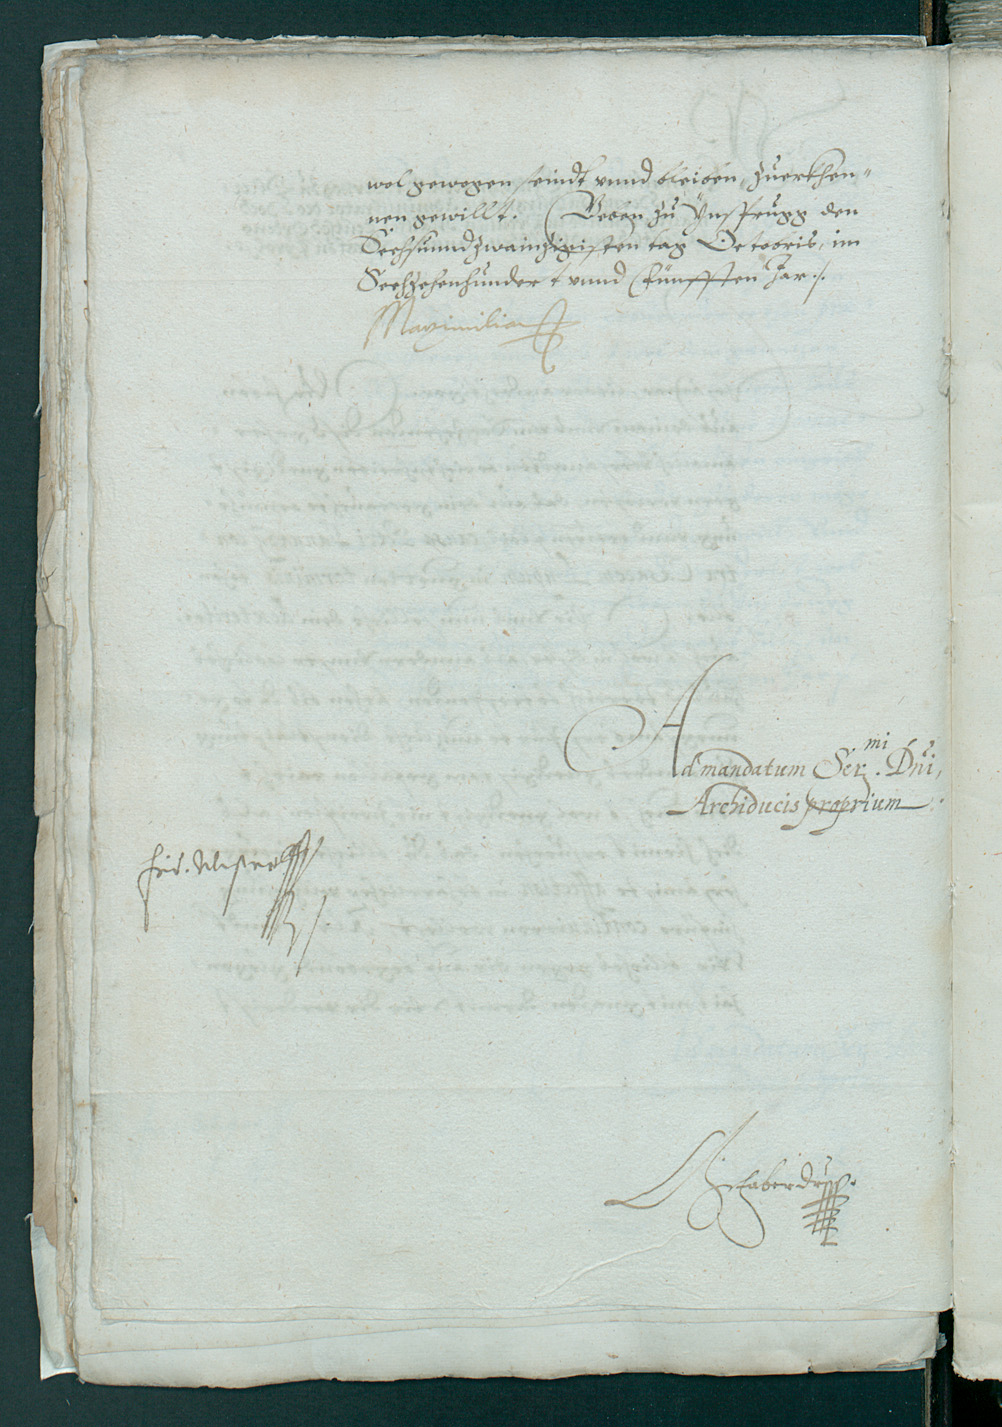 wol gewogen seindt vnnd bleiben, zuerkhen=
nen gewillt. Geben zu Ynsprugg den
Sechsunndzwainzigisten tag Octobris, im
Sechzehenhundert vnnd fünfften Jar ./.
Maximilian
Ad mandatum Ser.mi Dni,
Archiducis proprium